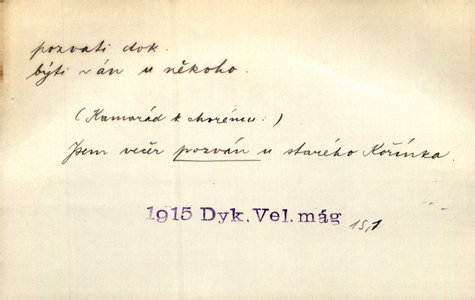 pozvati dok.
býti ~án u někoho.
(Kamarád k chorému:)
Jsem večer pozván u starého Kořínka.
1915 Dyk. Vel. mág 15,1